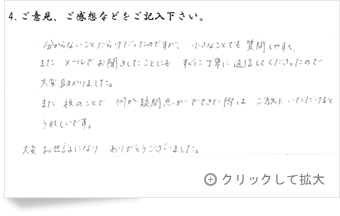 4.ご意見、ご感想などをご記入下さい。
分からないことだらけだったのですが、小さなことでも質問しやすく、
またメールでお聞きしたことにもすぐに丁寧に返信してくださったので
大変助かりました。
また税のことで何か疑問点がでてきた際はご教示いただけると
うれしいです。
大変お世話になりありがとうございました。
クリックして拡大